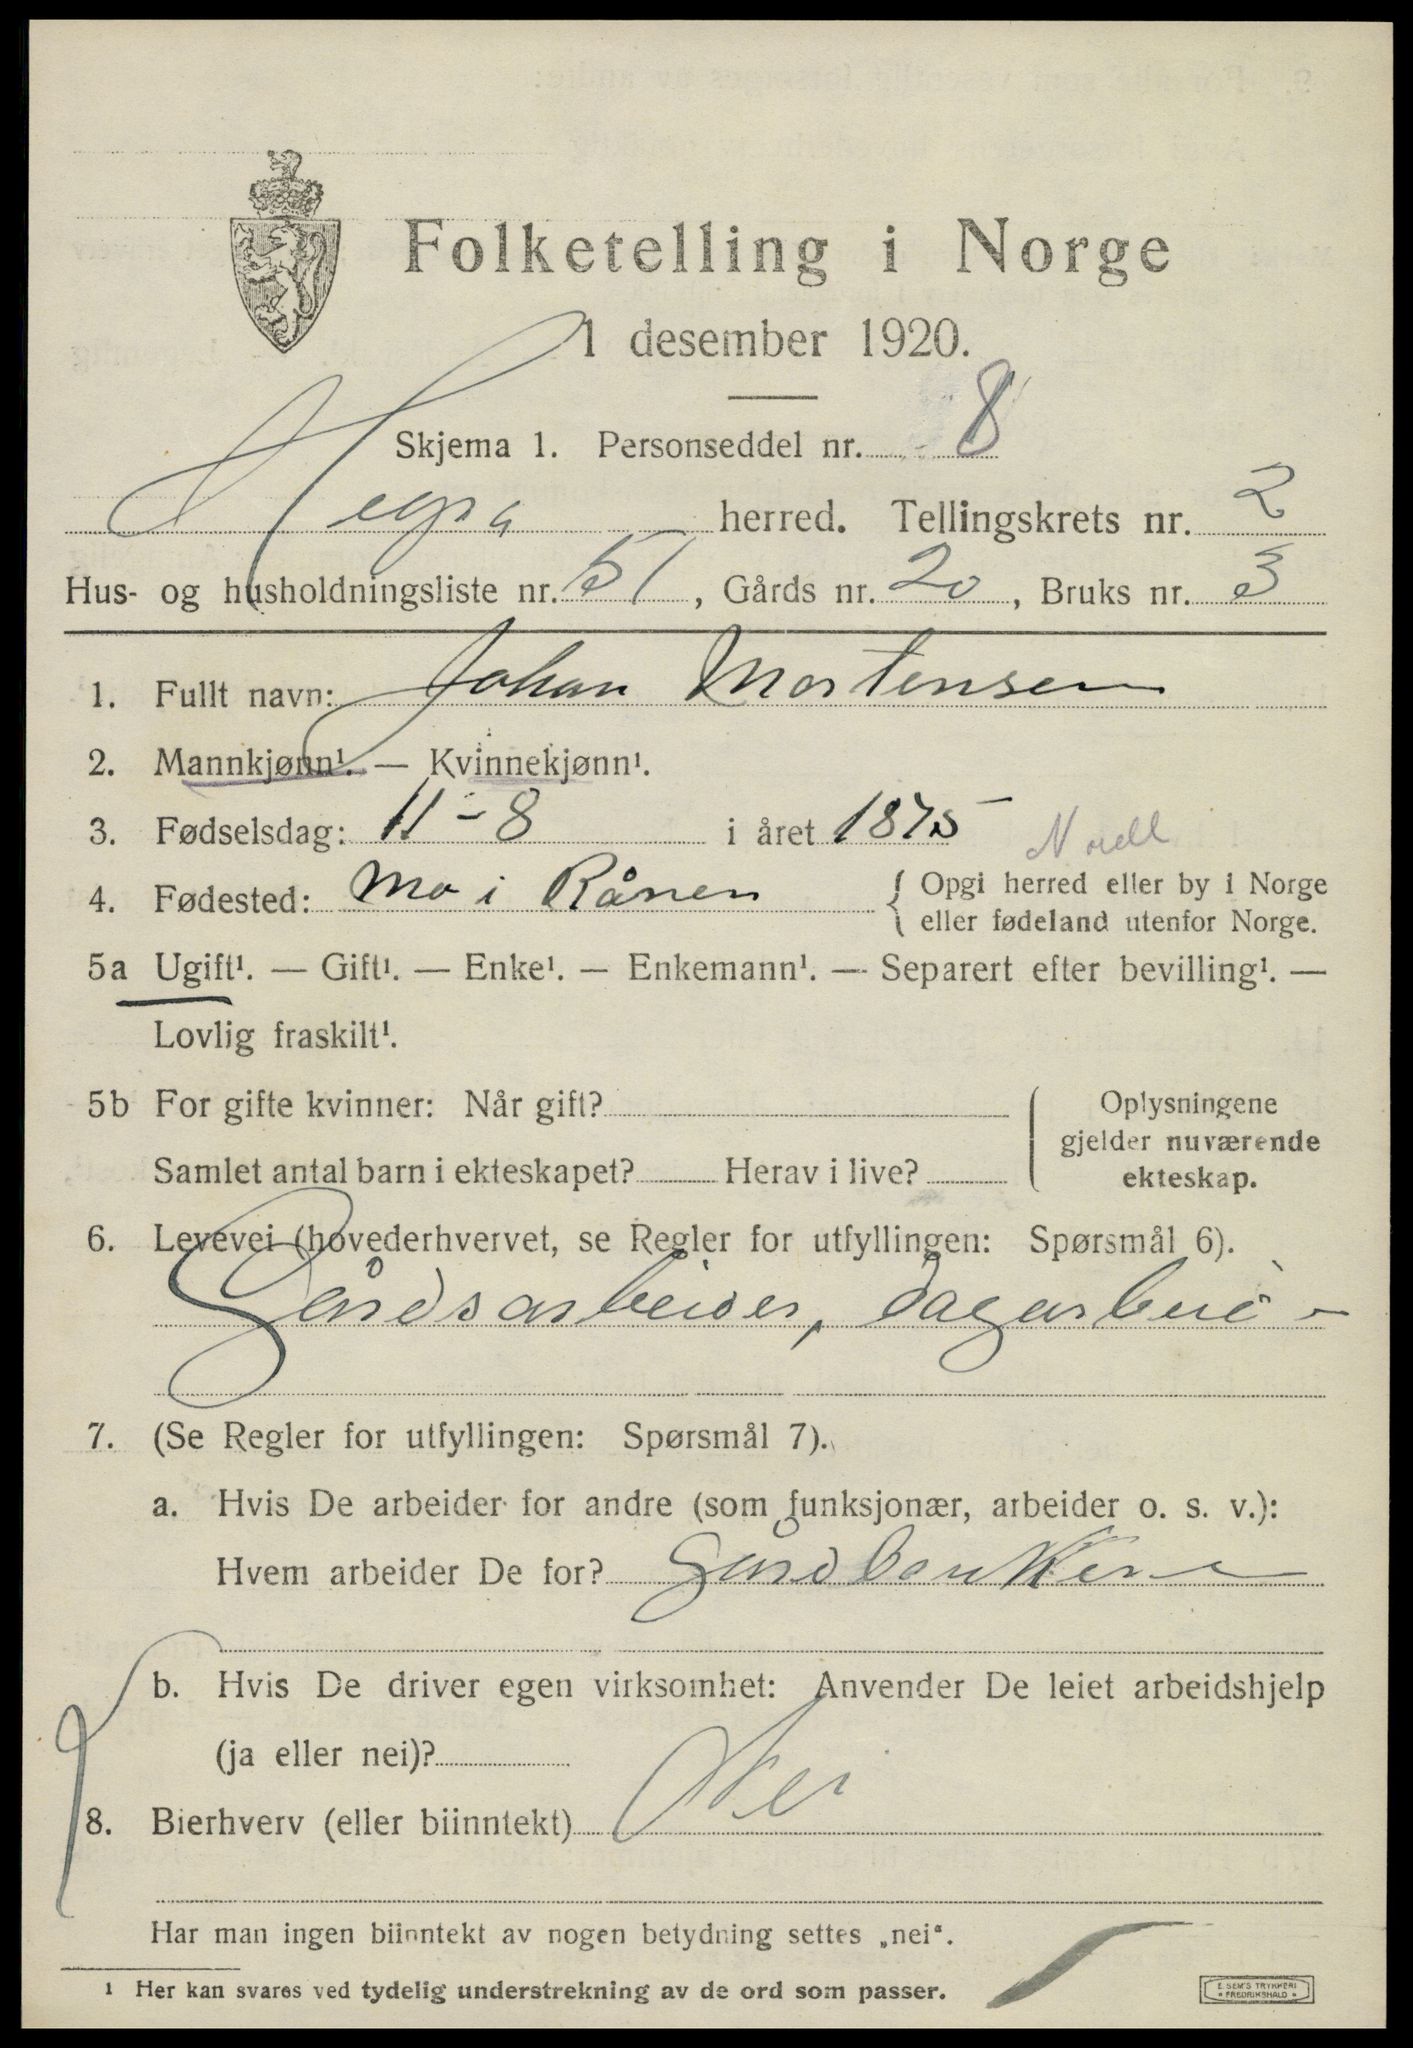 Folketelling i Norge
1 desember 1920.
Skjema 1. Personseddel nr. 8
Hegra herred. Tellingskrets nr. 2
Hus- og husholdningsliste nr. 51, Gårds nr. 20, Bruks nr. 3
1. Fullt navn: Johan Mortensen
2. Mannkjønn¹. — Kvinnekjønn¹.
3. Fødselsdag: 11-8 i året 1875
Nordl
4. Fødested: Mo i Rånen { Opgi herred eller by i Norge
eller fødeland utenfor Norge.
5a Ugift¹. — Gift¹. — Enke¹. — Enkemann¹. — Separert efter bevilling¹. —
Lovlig fraskilt¹.
5b For gifte kvinner: Når gift? { Oplysningene
gjelder nuværende
Samlet antal barn i ekteskapet? Herav i live?
ekteskap.
6. Levevei (hovederhvervet, se Regler for utfyllingen: Spørsmål 6).
Gårdsarbeider, dagarbeid -
7. (Se Regler for utfyllingen: Spørsmål 7).
a. Hvis De arbeider for andre (som funksjonær, arbeider o. s. v.):
Hvem arbeider De for? Gårdbrukere
b. Hvis De driver egen virksomhet: Anvender De leiet arbeidshjelp
(ja eller nei)?
8. Bierhverv (eller biinntekt) Nei
Har man ingen biinntekt av nogen betydning settes „nei“.
¹ Her kan svares ved tydelig understrekning av de ord som passer.
E. SEM'S TRYKKERI
FREDRIKSHALD